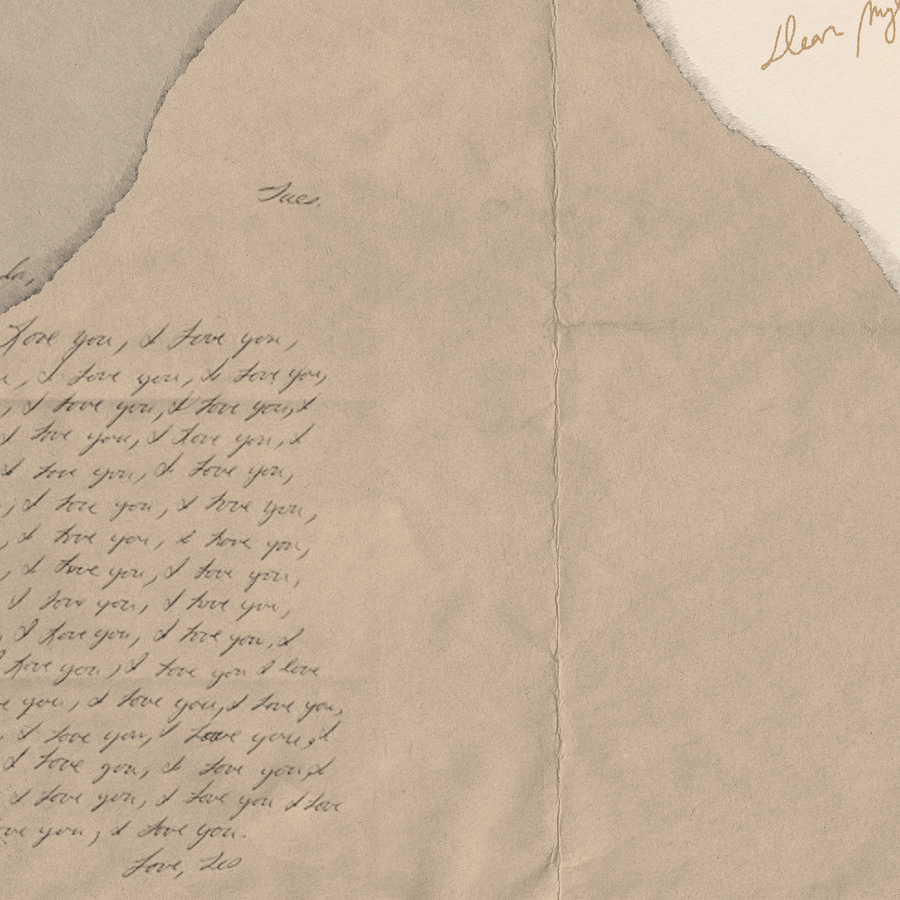 Dear
Tues.
Love you, I love you,
, I love you, I love you,
, I love you, I love you, I
I love you, I love you, I
I love you, I love you,
, I love you, I love you,
, I love you, I love you,
, I love you, I love you,
I love you, I love you,
, I love you, I love you, I
I love you, I love you I love
you, I love you, I love you,
, I love you, I love you, I
I love you, I love you, I
I love you, I love you I love
love you, I love you.
Love, Leo